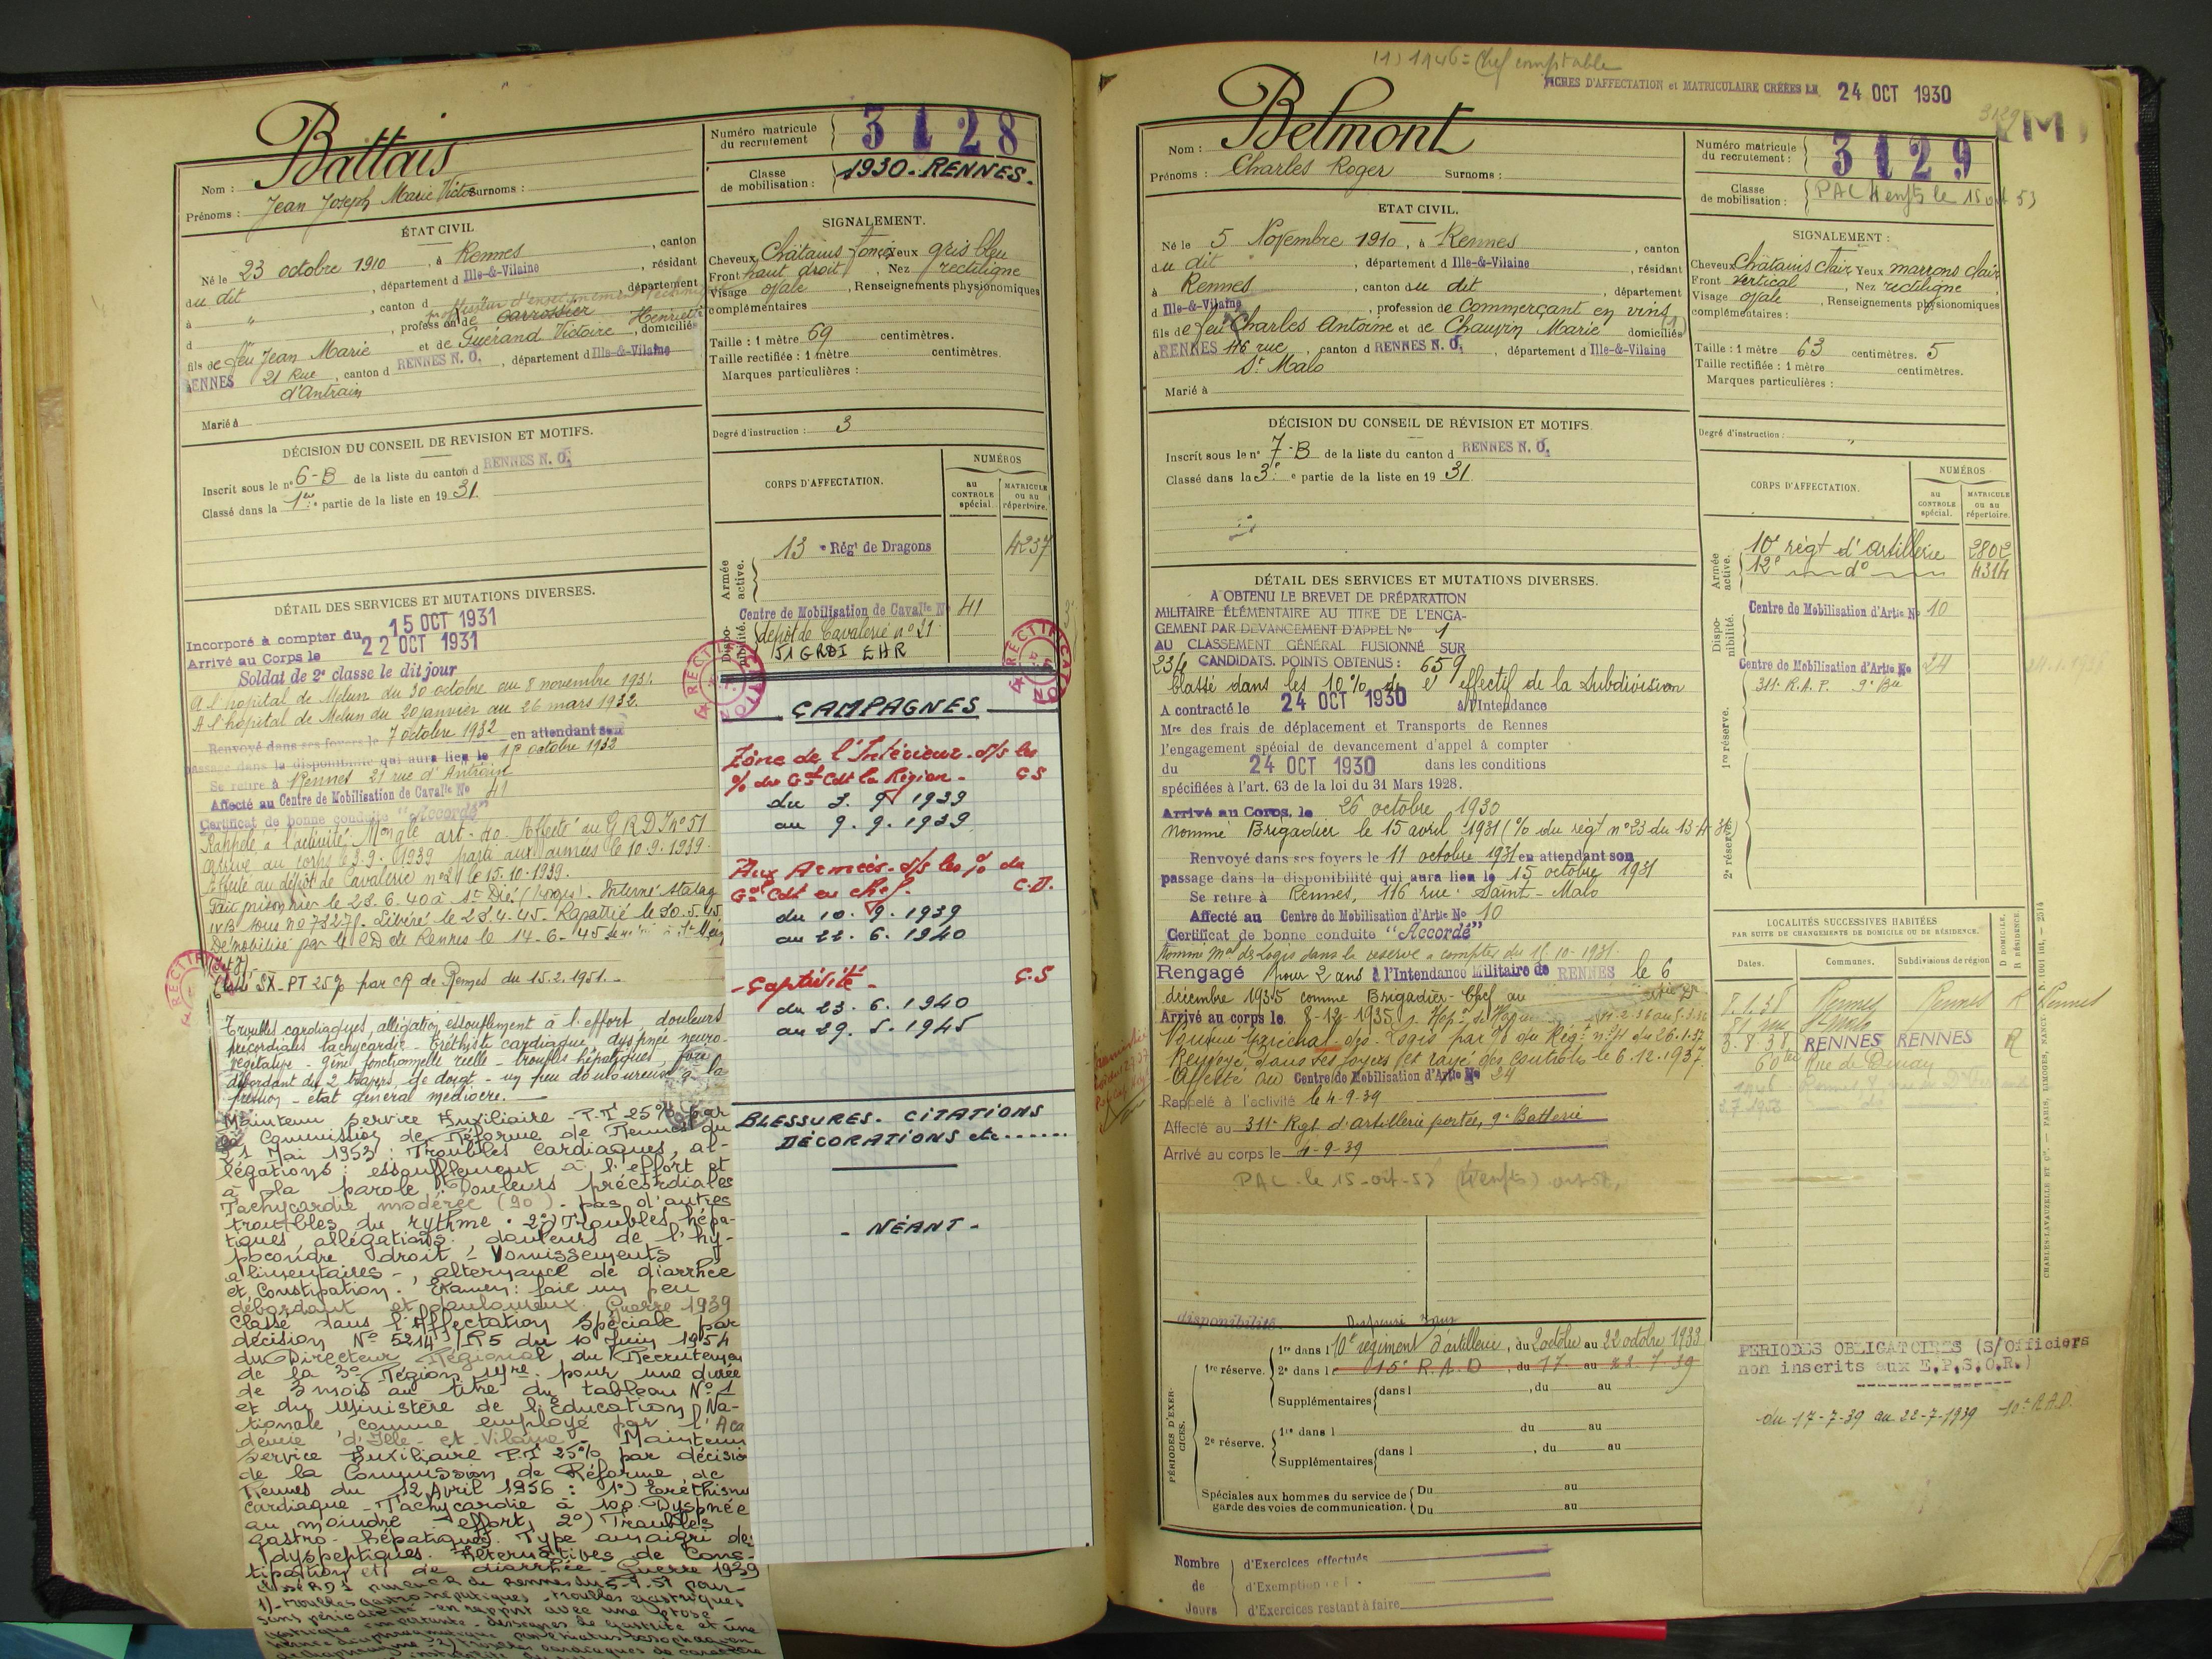 Battais
Nom :
Prénoms : Jean Joseph Marie Victor Surnoms :
Numéro matricule du recrutement 3128
Classe de mobilisation : 1930 - RENNES -
ÉTAT CIVIL
Né le 23 octobre 1910, à Rennes, canton
du dit, département d Ille-&-Vilaine, résidant
à ", canton d, département
professeur d'enseignement technique
d, profession de carrossier
fils de feu Jean Marie et de Guérand Victoire Henriette, domiciliés
à RENNES 21 Rue, canton d RENNES N. O., département d Ille-&-Vilaine
d'Antrain
Marié à
SIGNALEMENT.
Cheveux Châtains foncés Yeux gris bleu
Front haut droit, Nez rectiligne
Visage ovale, Renseignements physionomiques
complémentaires
Taille : 1 mètre 69 centimètres.
Taille rectifiée : 1 mètre centimètres.
Marques particulières :
Degré d'instruction : 3
DÉCISION DU CONSEIL DE REVISION ET MOTIFS.
Inscrit sous le n° 6-B de la liste du canton d RENNES N. O.
Classé dans la 1re partie de la liste en 1931.
CORPS D'AFFECTATION.
NUMÉROS
au CONTROLE spécial.
MATRICULE ou au répertoire.
Armée active.
13e Régt de Dragons 4237
Disponibilité.
Centre de Mobilisation de Cavalie No 41
dépôt de Cavalerie n° 21
51 GRDI EHR
DÉTAIL DES SERVICES ET MUTATIONS DIVERSES.
Incorporé à compter du 15 OCT 1931
Arrivé au Corps le 22 OCT 1931
Soldat de 2e classe le dit jour
A l'hôpital de Melun du 30 octobre au 8 novembre 1931
A l'hôpital de Melun du 20 janvier au 26 mars 1932
Renvoyé dans ses foyers le 7 octobre 1932 en attendant son
passage dans la disponibilité qui aura lieu le 15 octobre 1932
Se retire à Rennes 21 rue d'Antrain
Affecté au Centre de Mobilisation de Cavalie No 41
Certificat de bonne conduite "Accordé"
Rappelé à l'activité. Affecté au GRDI n° 51
arrivé au corps le 3-9-1939 parti aux armées le 10.9.1939.
Affecté au dépôt de Cavalerie n° 21 le 15-10-1939.
Fait prisonnier le 23-6-40 à St Dié (Vosges). Interné stalag
IVB sous n° 73271. Libéré le 23-4-45. Rapatrié le 30.5.45
Démobilisé par le CD de Rennes le 14-6-45
Classé SX - PT 25% par CR de Rennes du 15.2.1951.
Troubles cardiaques, allégation essouflement à l'effort, douleurs
précordiales tachycardie - éréthisme cardiaque, dyspnée neuro-
végétative - gêne fonctionnelle réelle - troubles hépatiques, foie
débordant de 2 travers de doigt - un peu douloureux à la
pression - état général médiocre.
Maintenu service Auxiliaire - P.I 25% par
la Commission de Réforme de Rennes du
21 Mai 1953 : Troubles cardiaques, al-
légations : essoufflement à l'effort et
à la parole. Douleurs précordiales
Tachycardie modérée (90). pas d'autres
troubles du rythme. 2°) Troubles hépa-
tiques, allégations : douleurs de l'hy-
pocondre droit - Vomissements
alimentaires -, alternance de diarrhée
et Constipation. Examen : foie un peu
débordant et douloureux. Guerre 1939
Classé dans l'Affectation Spéciale par
décision N° 5214/R5 du 10 Juin 1954
du Directeur Régional du Recrutement
de la 3e Région Mre. pour une durée
de 3 mois au titre du tableau N° 1
et du Ministère de l'Éducation Na-
tionale comme employé par l'Aca
démie d'Ille-et-Vilaine - Maintenu
service Auxiliaire P.I 25% par décision
de la Commission de Réforme de
Rennes du 12 Avril 1956 : 1°) Eréthisme
cardiaque - Tachycardie à 100. Dyspnée
au moindre effort, 2°) Troubles
gastro-hépatiques. Type amaigri des
dyspeptiques. Alternatives de Cons-
tipation et de diarrhée - Guerre 1939
1)- troubles gastro-hépatiques - troubles gastriques
RECTIFICATION
CAMPAGNES
Zône de l'Intérieur d/s les
% du Gal Cdt la Région - C S
du 3. 9. 1939
au 9. 9. 1939
Aux Armées d/s les % du
Gal Cdt en chef. C. D.
du 10. 9. 1939
au 22. 6. 1940
- Captivité - C. S
du 23. 6. 1940
au 29. 5. 1945
BLESSURES - CITATIONS
DÉCORATIONS etc......
- NÉANT -
(1) 1946 = Chef comptable
FICHES D'AFFECTATION et MATRICULAIRE CRÉÉES LE 24 OCT 1930
3129 (M)
Nom : Belmont
Prénoms : Charles Roger Surnoms :
Numéro matricule du recrutement : 3129
Classe de mobilisation : PAC
ETAT CIVIL.
Né le 5 Novembre 1910, à Rennes, canton
du dit, département d Ille-&-Vilaine, résidant
à Rennes, canton du dit, département
d Ille-&-Vilaine, profession de Commerçant en vins (1)
fils de feu Charles Antoine et de Chauvin Marie domiciliés
à RENNES 116 rue, canton d RENNES N. O., département d Ille-&-Vilaine
St Malo
Marié à
SIGNALEMENT :
Cheveux Châtains clair Yeux marrons clair
Front vertical, Nez rectiligne
Visage ovale, Renseignements physionomiques
complémentaires :
Taille : 1 mètre 63 centimètres. 5
Taille rectifiée : 1 mètre centimètres.
Marques particulières :
Degré d'instruction :
DÉCISION DU CONSEIL DE RÉVISION ET MOTIFS.
Inscrit sous le n° 7-B de la liste du canton d RENNES N. O.
Classé dans la 3e partie de la liste en 1931
CORPS D'AFFECTATION.
NUMÉROS
au CONTROLE spécial.
MATRICULE ou au répertoire.
Armée active.
10e régt d'artillerie 2802
12e d° 4314
Disponibilité.
Centre de Mobilisation d'Artie No 10
Centre de Mobilisation d'Artie No 24
311e R.A.P. 9e Bie
1re réserve.
2e réserve.
DÉTAIL DES SERVICES ET MUTATIONS DIVERSES.
A OBTENU LE BREVET DE PRÉPARATION
MILITAIRE ÉLÉMENTAIRE AU TITRE DE L'ENGA-
GEMENT PAR DEVANCEMENT D'APPEL No 1
AU CLASSEMENT GÉNÉRAL FUSIONNÉ SUR
234 CANDIDATS. POINTS OBTENUS : 659
Classé dans les 10% de l'effectif de la Subdivision
A contracté le 24 OCT 1930 à l'Intendance
Mre des frais de déplacement et Transports de Rennes
l'engagement spécial de devancement d'appel à compter
du 24 OCT 1930 dans les conditions
spécifiées à l'art. 63 de la loi du 31 Mars 1928.
Arrivé au Corps, le 26 octobre 1930
nommé Brigadier le 15 avril 1931 (% du régt n° 23 du 13-4-31)
Renvoyé dans ses foyers le 11 octobre 1931 en attendant son
passage dans la disponibilité qui aura lieu le 15 octobre 1931
Se retire à Rennes, 116 rue Saint-Malo
Affecté au Centre de Mobilisation d'Artie No 10
Certificat de bonne conduite "Accordé"
Nommé Mal des Logis dans la réserve à compter du 15-10-1931.
Rengagé pour 2 ans à l'Intendance Militaire de RENNES le 6
décembre 1935 comme Brigadier-Chef au
Arrivé au corps le 8-12-1935
Nommé Maréchal des Logis par % du Régt n° 11 du 26.1.37
Renvoyé dans ses foyers et rayé des contrôles le 6.12.1937
Affecté au Centre de Mobilisation d'Artie No 24
Rappelé à l'activité le 4-9-39
Affecté au 311e Rgt d'artillerie portée, 9e Batterie
Arrivé au corps le 4-9-39
PAC le 15-oct-53
LOCALITÉS SUCCESSIVES HABITÉES
PAR SUITE DE CHANGEMENTS DE DOMICILE OU DE RÉSIDENCE.
Dates. Communes. Subdivisions de région D DOMICILE. R RÉSIDENCE.
8.1.38 Rennes Rennes R
81 rue St Malo
3-8 38 RENNES RENNES R
60 bis Rue de Dinan
CHARLES-LAVAUZELLE ET Cie. — PARIS, LIMOGES, NANCY
disponibilité. Dispensé
PÉRIODES D'EXERCICES.
1re réserve. 1re dans l 10e régiment d'artillerie, du 2 octobre au 22 octobre 1933
2e dans l 15e R.A.D, du 17 au 22 7 39
Supplémentaires dans l, du au
2e réserve. 1re dans l du au
Supplémentaires dans l, du au
Spéciales aux hommes du service de garde des voies de communication. Du au
Du au
PERIODES OBLIGATOIRES (S/Officiers
non inscrits aux E.P.S.O.R.)
du 17-7-39 au 22-7-1939 10e R.A.D.
Nombre de Jours
d'Exercices effectués
d'Exemption
d'Exercices restant à faire